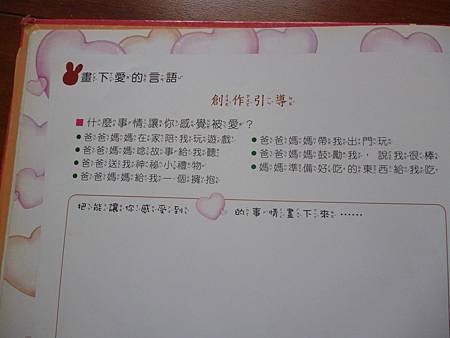 畫下愛的言語
創作引導
什麼事情讓你感覺被愛？
爸爸媽媽在家陪我玩遊戲
爸爸媽媽唸故事給我聽
爸爸送我神祕小禮物
爸爸媽媽給我一個擁抱
爸爸媽媽帶我出門玩
爸爸媽媽鼓勵我，說我很棒
媽媽準備好吃的東西給我吃
把能讓你感受到 的事情畫下來……